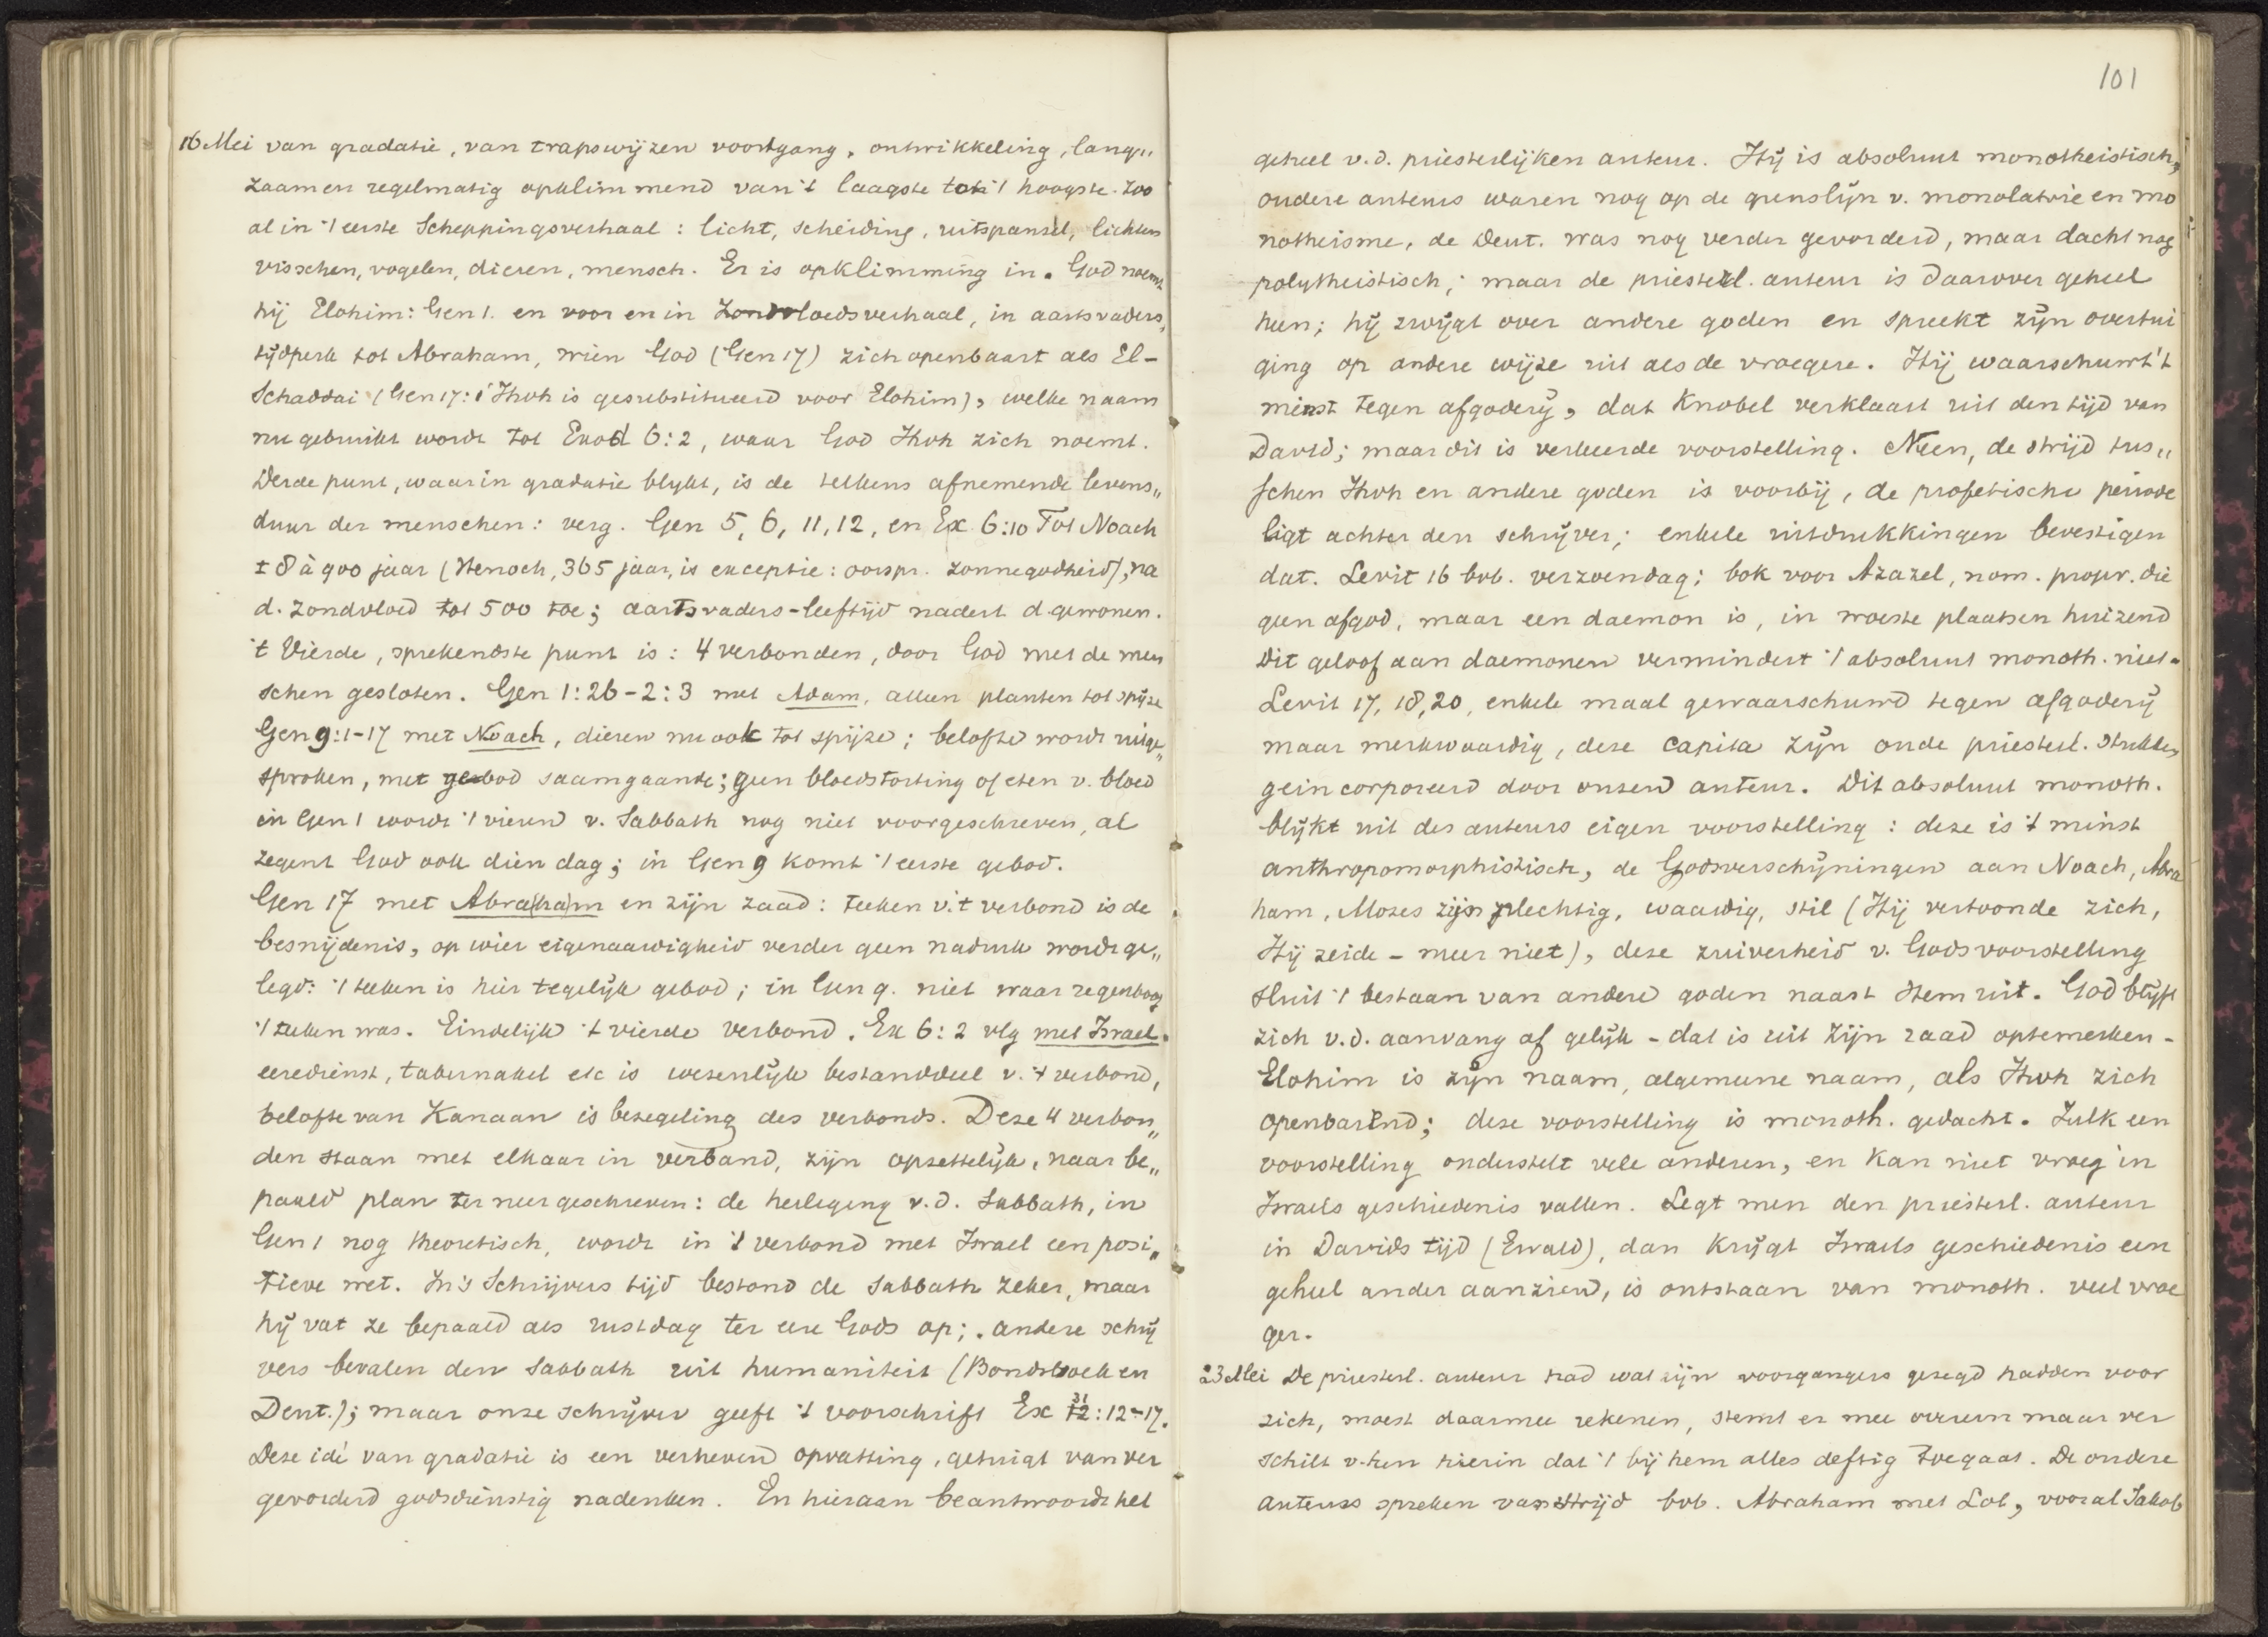 16 Mei van gradatie, van trapswijzen voortgang, ontwikkeling, lang„
zaam en regelmatig opklimmend van 't laagste tot 't hoogste. Zoo
al in 't eerste Scheppingsverhaal: licht, scheiding, uitspansel, lichten
visschen, vogelen, dieren, mensch. Er is opklimming in. God noemt
hij Elohim: Gen 1. en voor en in Zondvloedsverhaal, in aartsvaders„
tijdperk tot Abraham, wien God (Gen 17) zich openbaart als El-
Schaddai (Gen 17:1 Jhvh is gesubstitueerd voor Elohim), welke naam
nu gebruikt wordt tot Exod 6:2, waar God Jhvh zich noemt.
Derde punt, waarin gradatie blijkt, is de telkens afnemende levens„
duur der menschen: verg. Gen 5, 6, 11, 12, en Ex 6:10 Tot Noach
± 8 à 900 jaar (Henoch, 365 jaar, is exceptie: oorspr. zonnegodheid), na
d. zondvloed tot 500 toe; aartsvaders-leeftijd nadert d. gewonen.
't Vierde, sprekendste punt is: 4 verbonden, door God met de men
schen gesloten. Gen 1:26-2:3 met Adam, alleen planten tot spijze
Gen 9:1-17 met Noach, dieren nu ook tot spijze; belofte wordt uitge„
sproken, met gebod saamgaande; geen bloedstorting of eten v. bloed
in Gen 1 wordt 't vieren v. Sabbath nog niet voorgeschreven, al
zegent God ook dien dag; in Gen 9 komt 't eerste gebod.
Gen 17 met Abra(ha)m en zijn zaad: teeken v. 't verbond is de
besnijdenis, op wier eigenaardigheid verder geen nadruk wordt ge„
legd: 't teeken is hier tegelijk gebod; in Gen 9. niet waar regenboog
't teeken was. Eindelijk 't vierde verbond. Ex 6:2 vlg met Israel.
eeredienst, tabernakel etc is wezenlijk bestanddeel v. 't verbond,
belofte van Kanaan is bezegeling des verbonds. Deze 4 verbon„
den staan met elkaar in verband, zijn opzettelijk, naar be„
paald plan ter neer geschreven: de heiliging v.d. Sabbath, in
Gen 1 nog theoretisch, wordt in 't verbond met Israel een posi„
tieve wet. In 's Schrijvers tijd bestond de Sabbath zeker, maar
hij vat ze bepaald als rustdag ter eere Gods op; andere schrij
vers bevalen den Sabbath uit humaniteit (Bondsboek en
Deut.); maar onze schrijver geeft 't voorschrift Ex 31:12-17.
Deze idé van gradatie is een verheven opvatting, getuigt van ver
gevorderd godsdienstig nadenken. En hieraan beantwoordt het
101
geheel v.d. priesterlijken auteur. Hij is absoluut monotheistisch,
oudere auteurs waren nog op de grenslijn v. monolatrie en mo
notheisme, de Deut. was nog verder gevorderd, maar dacht nog
polytheistisch; maar de priesterl. auteur is daarover geheel
heen; hij zwijgt over andere goden en spreekt zijn overtui
ging op andere wijze uit als de vroegere. Hij waarschuwt 't
minst tegen afgoderij, dat Knobel verklaart uit den tijd van
David; maar dit is verkeerde voorstelling. Neen, de strijd tus„
schen Jhvh en andere goden is voorbij, de profetische periode
ligt achter den schrijver; enkele uitdrukkingen bevestigen
dat. Levit 16 bvb. verzoendag; bok voor Azazel, nom. propr. die
geen afgod, maar een daemon is, in woeste plaatsen huizend
Dit geloof aan daemonen vermindert 't absoluut monoth. niet.
Levit 17, 18, 20, enkele maal gewaarschuwd tegen afgoderij
maar merkwaardig, deze capita zijn oude priesterl. stukken
geincorporeerd door onzen auteur. Dit absoluut monoth.
blijkt uit des auteurs eigen voorstelling: deze is 't minst
anthropomorphistisch, de Godsverschijningen aan Noach, Abra
ham, Mozes zijn plechtig, waardig, stil (Hij vertoonde zich,
Hij zeide - meer niet), deze zuiverheid v. Godsvoorstelling
sluit 't bestaan van andere goden naast Hem uit. God blijft
zich v.d. aanvang af gelijk - dat is uit zijn raad optemerken -
Elohim is zijn naam, algemeene naam, als Jhvh zich
openbarend; deze voorstelling is monoth. gedacht. Zulk een
voorstelling onderstelt vele anderen, en kan niet vroeg in
Israels geschiedenis vallen. Legt men den priesterl. auteur
in Davids tijd (Ewald), dan krijgt Israels geschiedenis een
geheel ander aanzien, is ontstaan van monoth. veel vroe
ger.
23 Mei De priesterl. auteur had wat zijn voorgangers gezegd hadden voor
zich, moest daarmee rekenen, stemt er mee overeen maar ver
schilt v. hen hierin dat 't bij hem alles deftig toegaat. De oudere
auteurs spreken van strijd bvb. Abraham met Lot, vooral Jakob